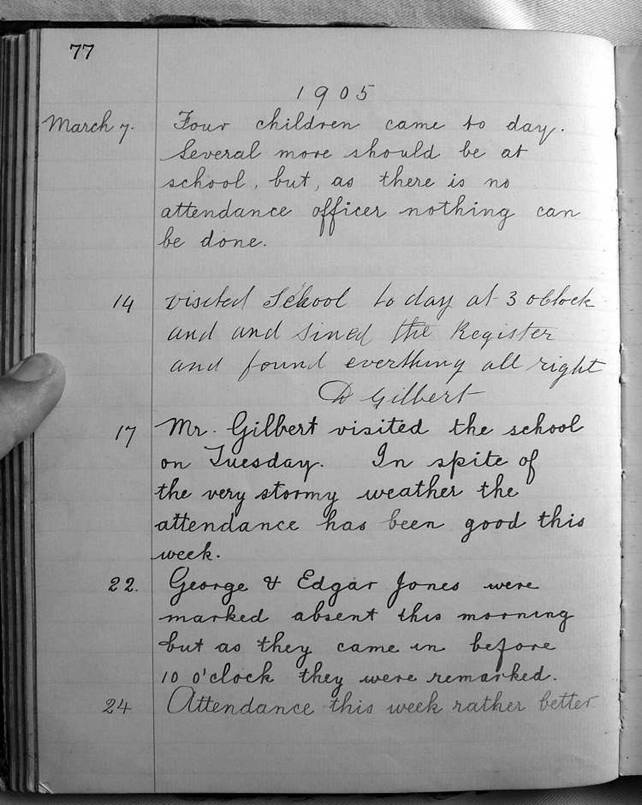 77
1905
March 7. Four children came to day.
Several more should be at
school, but, as there is no
attendance officer nothing can
be done.
14 visited School to day at 3 oClock
and and sined the Register
and found everthing all right
D Gilbert
17 Mr. Gilbert visited the school
on Tuesday. In spite of
the very stormy weather the
attendance has been good this
week.
22. George & Edgar Jones were
marked absent this morning
but as they came in before
10 o'clock they were remarked.
24 Attendance this week rather better